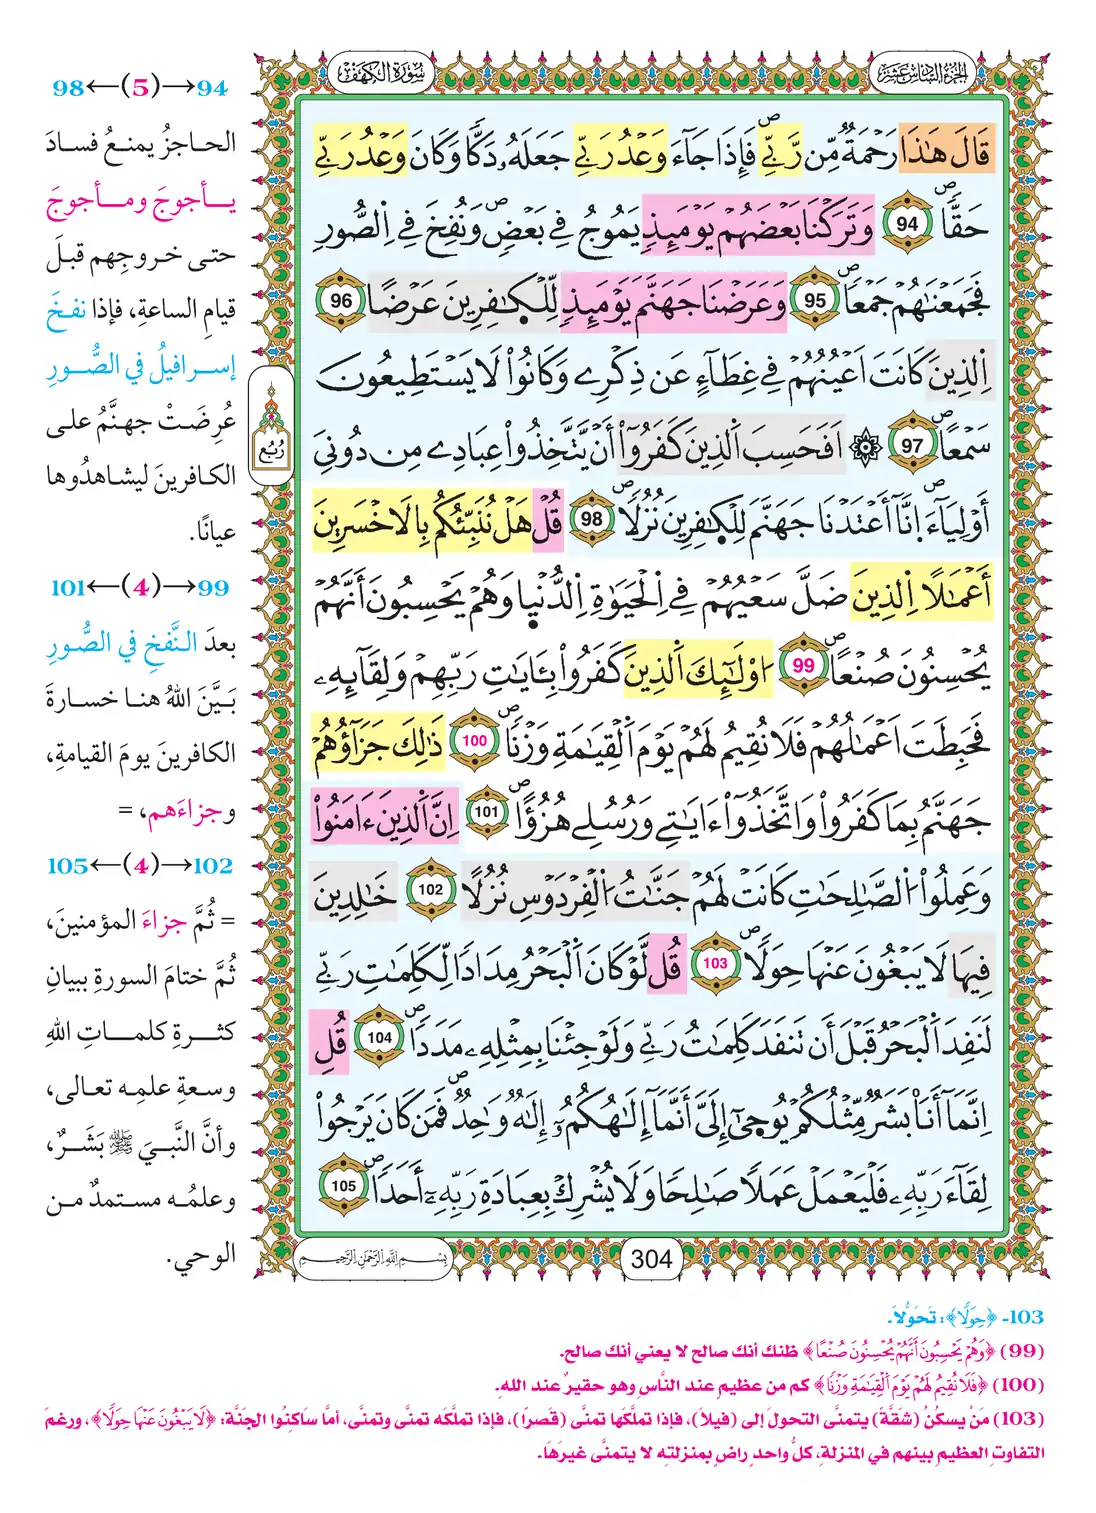 الجزء السادس عشر
سورة الكهف
قَالَ هَٰذَا رَحْمَةٌ مِّن رَّبِّے فَإِذَا جَآءَ وَعْدُ رَبِّے جَعَلَهُۥ دَكّٗا وَكَانَ وَعْدُ رَبِّے
حَقّٗا 94 وَتَرَكْنَا بَعْضَهُمْ يَوْمَئِذٖ يَمُوجُ فِے بَعْضٖ وَنُفِخَ فِے اِ۬لصُّورِ
فَجَمَعْنَٰهُمْ جَمْعاٗ 95 وَعَرَضْنَا جَهَنَّمَ يَوْمَئِذٖ لِّلْكٰ۪فِرِينَ عَرْضًا 96
اِ۬لذِينَ كَانَتَ اَعْيُنُهُمْ فِے غِطَآءٍ عَن ذِكْرِے وَكَانُواْ لَا يَسْتَطِيعُونَ
سَمْعاً 97 ۞ اَفَحَسِبَ اَ۬لذِينَ كَفَرُوٓاْ أَنْ يَّتَّخِذُواْ عِبَادِے مِن دُونِيَ
أَوْلِيَآءَ اِنَّآ أَعْتَدْنَا جَهَنَّمَ لِلْكٰ۪فِرِينَ نُزُلًا 98 قُلْ هَلْ نُنَبِّئُكُم بِالَاخْسَرِينَ
أَعْمَٰلًا اِ۬لذِينَ ضَلَّ سَعْيُهُمْ فِے اِ۬لْحَيَوٰةِ اِ۬لدُّنْي۪ا وَهُمْ يَحْسِبُونَ أَنَّهُمْ
يُحْسِنُونَ صُنْعاً 99 ا۟وْلَٰٓئِكَ اَ۬لذِينَ كَفَرُواْ بِـَٔايَٰتِ رَبِّهِمْ وَلِقَآئِهِۦ
فَحَبِطَتَ اَعْمَٰلُهُمْ فَلَا نُقِيمُ لَهُمْ يَوْمَ اَ۬لْقِيَٰمَةِ وَزْنٗا 100 ذَٰلِكَ جَزَآؤُهُمْ
جَهَنَّمُ بِمَا كَفَرُواْ وَاتَّخَذُوٓاْ ءَايَٰتِے وَرُسُلِے هُزُؤًا 101 اِنَّ اَ۬لذِينَ ءَامَنُواْ
وَعَمِلُواْ اُ۬لصَّٰلِحَٰتِ كَانَتْ لَهُمْ جَنَّٰتُ اُ۬لْفِرْدَوْسِ نُزُلًا 102 خَٰلِدِينَ
فِيهَا لَا يَبْغُونَ عَنْهَا حِوَلًا 103 قُل لَّوْ كَانَ اَ۬لْبَحْرُ مِدَادٗا لِّكَلِمَٰتِ رَبِّے
لَنَفِدَ اَ۬لْبَحْرُ قَبْلَ أَن تَنفَدَ كَلِمَٰتُ رَبِّے وَلَوْ جِئْنَا بِمِثْلِهِۦ مَدَدًا 104 قُلِ
اِنَّمَآ أَنَا بَشَرٌ مِّثْلُكُمْ يُوح۪يٰٓ إِلَيَّ أَنَّمَآ إِلَٰهُكُمُۥٓ إِلَٰهٌ وَٰحِدٌ فَمَن كَانَ يَرْجُواْ
لِقَآءَ رَبِّهِۦ فَلْيَعْمَلْ عَمَلًا صَٰلِحًا وَلَا يُشْرِكْ بِعِبَادَةِ رَبِّهِۦٓ أَحَدًا 105
رُبُع
304
بسم الله الرحمن الرحيم
94→(5)←98
الحاجزُ يمنعُ فسادَ
يأجوجَ ومأجوجَ
حتى خروجِهم قبلَ
قيامِ الساعةِ، فإذا نفخَ
إسرافيلُ في الصُّورِ
عُرِضَتْ جهنَّمُ على
الكافرينَ ليشاهدُوها
عيانًا.
99→(4)←101
بعدَ النَّفخِ في الصُّورِ
بَيَّنَ اللهُ هنا خسارةَ
الكافرينَ يومَ القيامةِ،
وجزاءَهم، =
102→(4)←105
= ثُمَّ جزاءَ المؤمنينَ،
ثُمَّ ختامَ السورةِ ببيانِ
كثرةِ كلماتِ اللهِ
وسعةِ علمِه تعالى،
وأنَّ النَّبيَ ﷺ بَشَرٌ،
وعلمُه مستمدٌ من
الوحيِ.
103- ﴿حِوَلًا﴾: تَحَوُّلاً.
(99) ﴿وَهُمْ يَحْسِبُونَ أَنَّهُمْ يُحْسِنُونَ صُنْعًا﴾ ظنك أنك صالح لا يعني أنك صالح.
(100) ﴿فَلَا نُقِيمُ لَهُمْ يَوْمَ الْقِيَٰمَةِ وَزْنًا﴾ كم من عظيمٍ عند النَّاس وهو حقيرٌ عند الله.
(103) مَنْ يسكُنُ (شقَّةً) يتمنَّى التحولَ إلى (فيلا)، فإذا تملَّكَها تمنَّى (قصرا)، فإذا تملَّكَه تمنَّى وتمنَّى، أمَّا ساكِنُوا الجَنَّة: ﴿لَا يَبْغُونَ عَنْهَا حِوَلًا﴾، ورغمَ
التفاوتِ العظيم بينهم في المنزلة، كلُّ واحدٍ راضٍ بمنزلتِه لا يتمنَّى غيرَها.